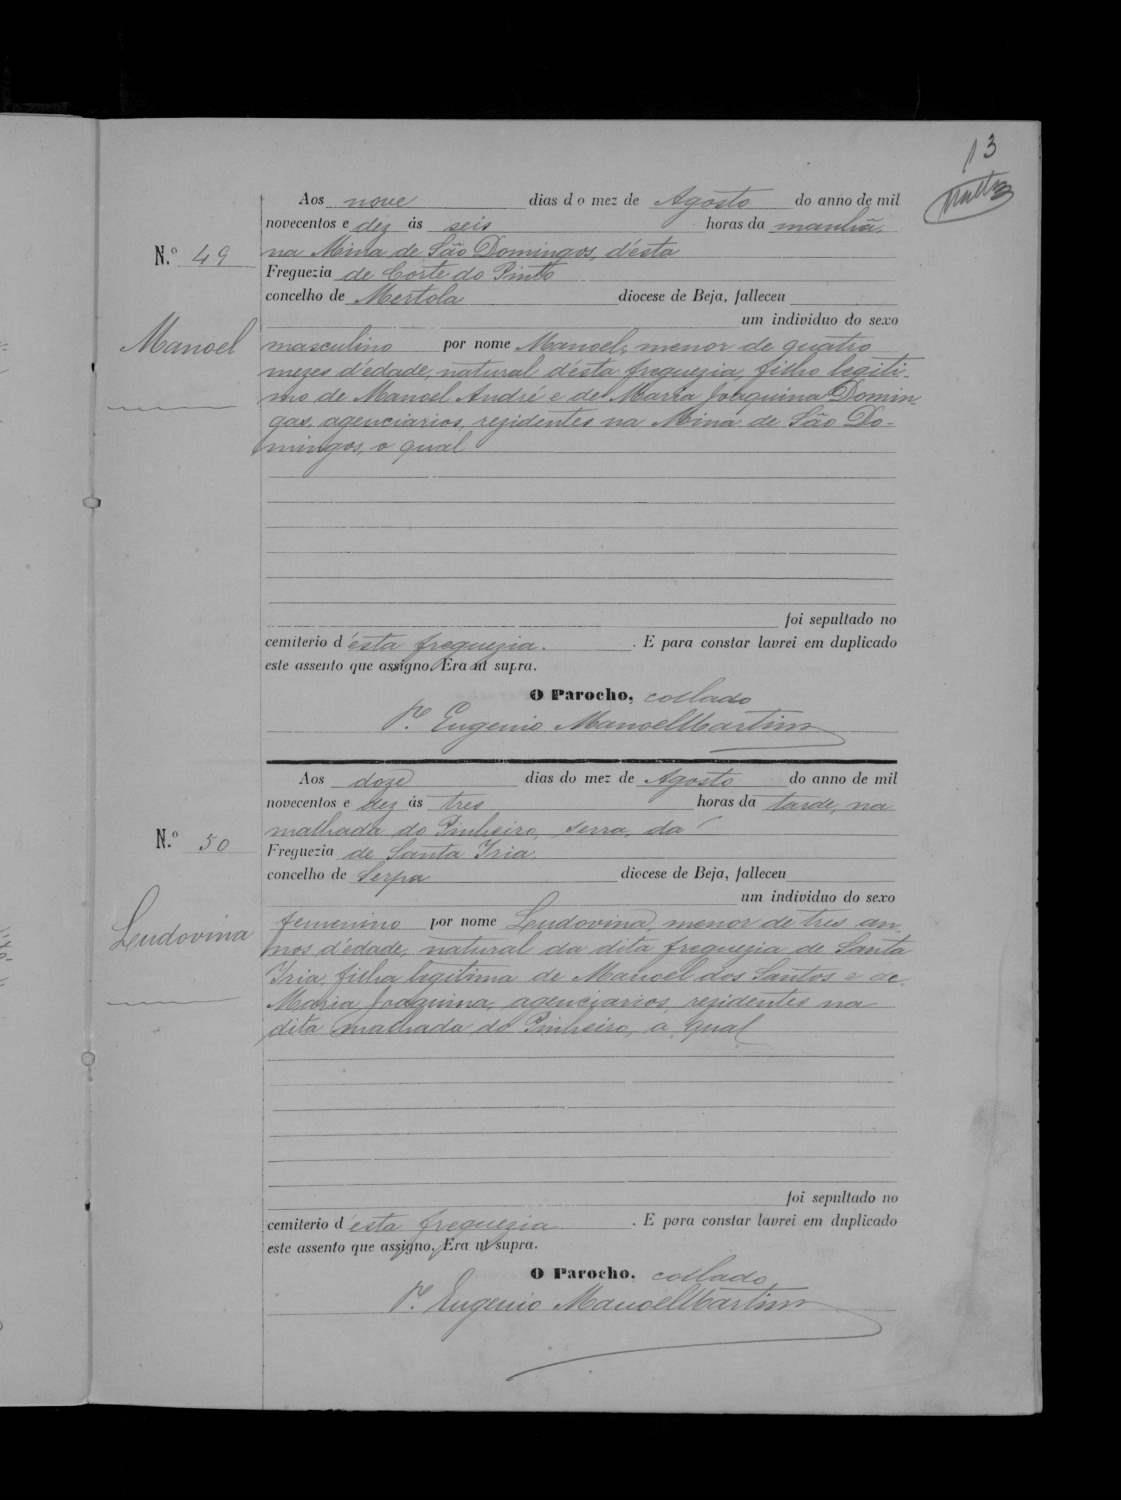 13
Aos nove dias do mez de Agosto do anno de mil
novecentos e dez ás seis horas da manhã,
N.º 49 na Mina de São Domingos, d'ésta
Freguezia de Corte do Pinto
concelho de Mertola diocese de Beja, falleceu
um individuo do sexo
Manoel masculino por nome Manoel, menor de quatro
mezes d'édade, natural d'ésta freguezia, filho legiti-
mo de Manoel André e de Maria Joaquina Domin-
gas, agenciarios, rezidentes na Mina de São Do-
mingos, o qual
foi sepultado no
cemiterio d'ésta freguezia. . E para constar lavrei em duplicado
este assento que assigno. Era ut supra.
O Parocho, collado
P.e Eugenio Manoel Martins
Aos doze dias do mez de Agosto do anno de mil
novecentos e dez ás tres horas da tarde, na
malhada do Pinheiro, serra, da
N.º 50 Freguezia de Santa Iria,
concelho de Serpa diocese de Beja, falleceu
um individuo do sexo
Ludovina femenino por nome Ludovina, menor de tres an-
nos d'édade, natural da dita freguezia de Santa
Iria, filha legitima de Manoel dos Santos e de
Maria Joaquina, agenciarios, rezidentes na
dita malhada do Pinheiro, a qual
foi sepultado no
cemiterio d'ésta freguezia . E para constar lavrei em duplicado
este assento que assigno. Era ut supra.
O Parocho, collado,
P.e Eugenio Manoel Martins